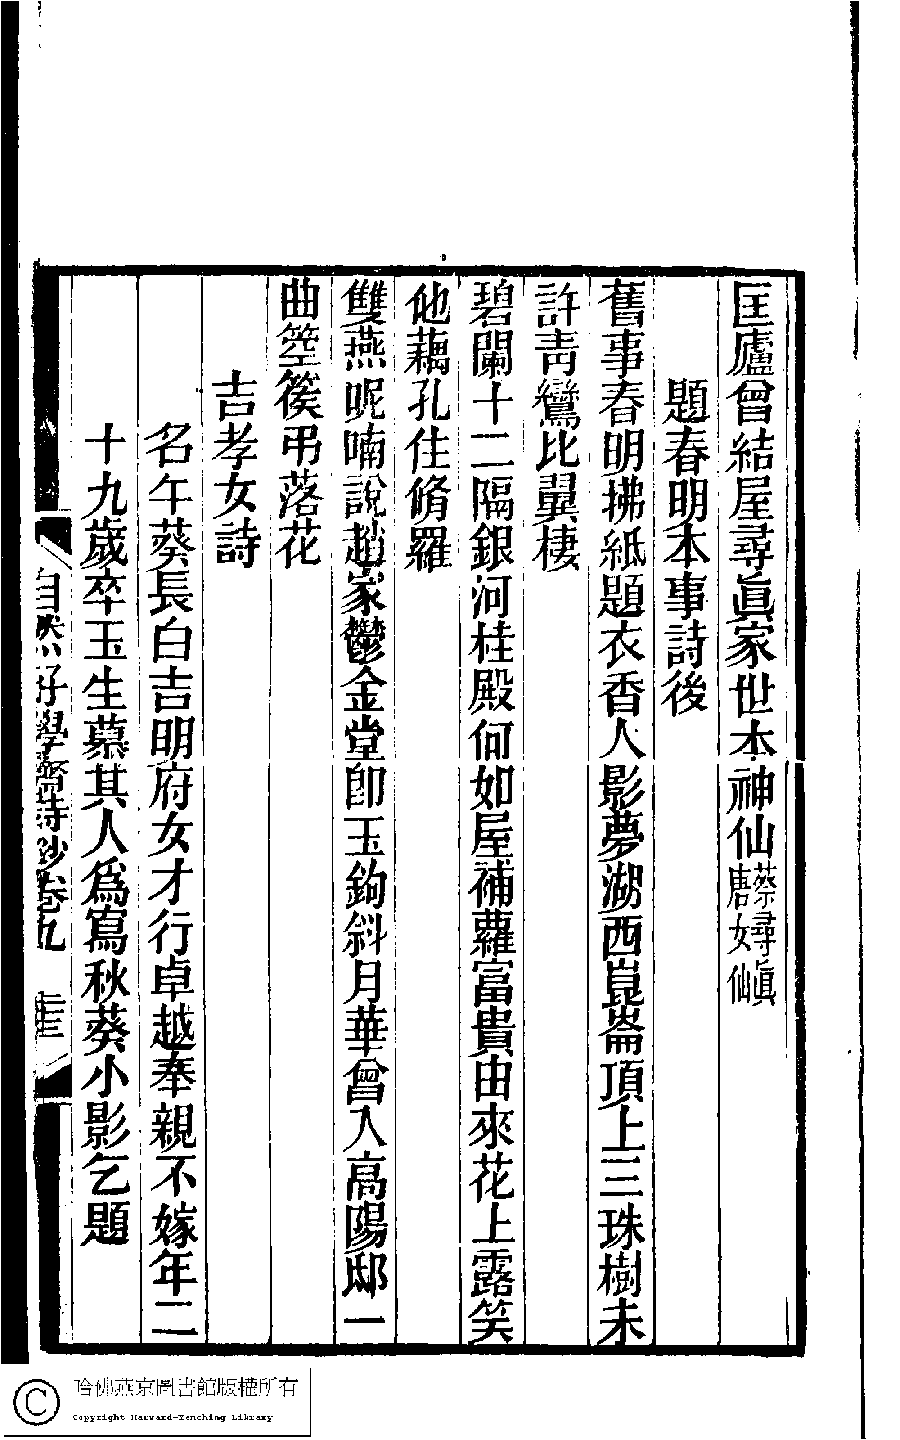 匡廬曾結屋尋眞家世本神仙蔡尋眞唐女仙
題春明本事詩後
舊事春明拂紙題衣香人影夢湖西崑崙頂上三珠樹未
許靑鸞比翼棲
碧闌十二隔銀河桂殿何如屋補蘿富貴由來花上露笑
他藕孔住脩羅
雙燕呢喃說趙家鬱金堂卽玉鉤斜月華曾入高陽邸一
曲箜篌弔落花
吉孝女詩
名午葵長白吉明府女才行卓越奉親不嫁年二
十九歲卒玉生慕其人爲寫秋葵小影乞題
自然好學齋詩鈔卷九
哈佛燕京圖書館版權所有
Copyright Harvard-Yenching Library